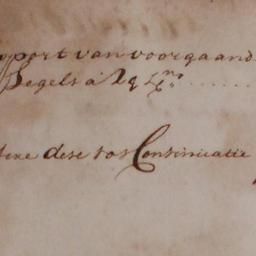 pport van voorgaand
Segels a 24
dese tot Continuatie